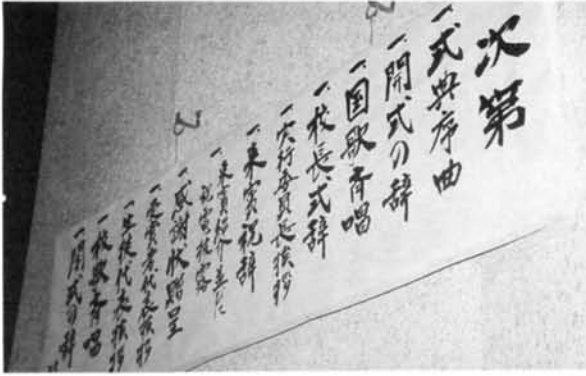 次第
一、式典序曲
一、開式の辞
一、国歌斉唱
一、校長式辞
一、実行委員長挨拶
一、来賓祝辞
一、来賓紹介並に
祝電披露
一、感謝状贈呈
一、受賞者代表挨拶
一、生徒代表挨拶
一、校歌斉唱
一、閉式の辞